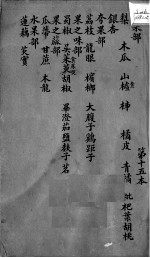 第十五本
梨 木瓜 山樝 柿 橘皮 青橘 枇杷葉 胡桃
銀杏
夸果部
荔枝 龍眼 檳榔 大腹子 鷄距子
果之味部
蜀椒 吴茱萸 胡椒 畢澄茄 鹽麩子 茗
果之蓏部
瓜蒂 甘蔗 木龍
水果部
蓮藕 芡實